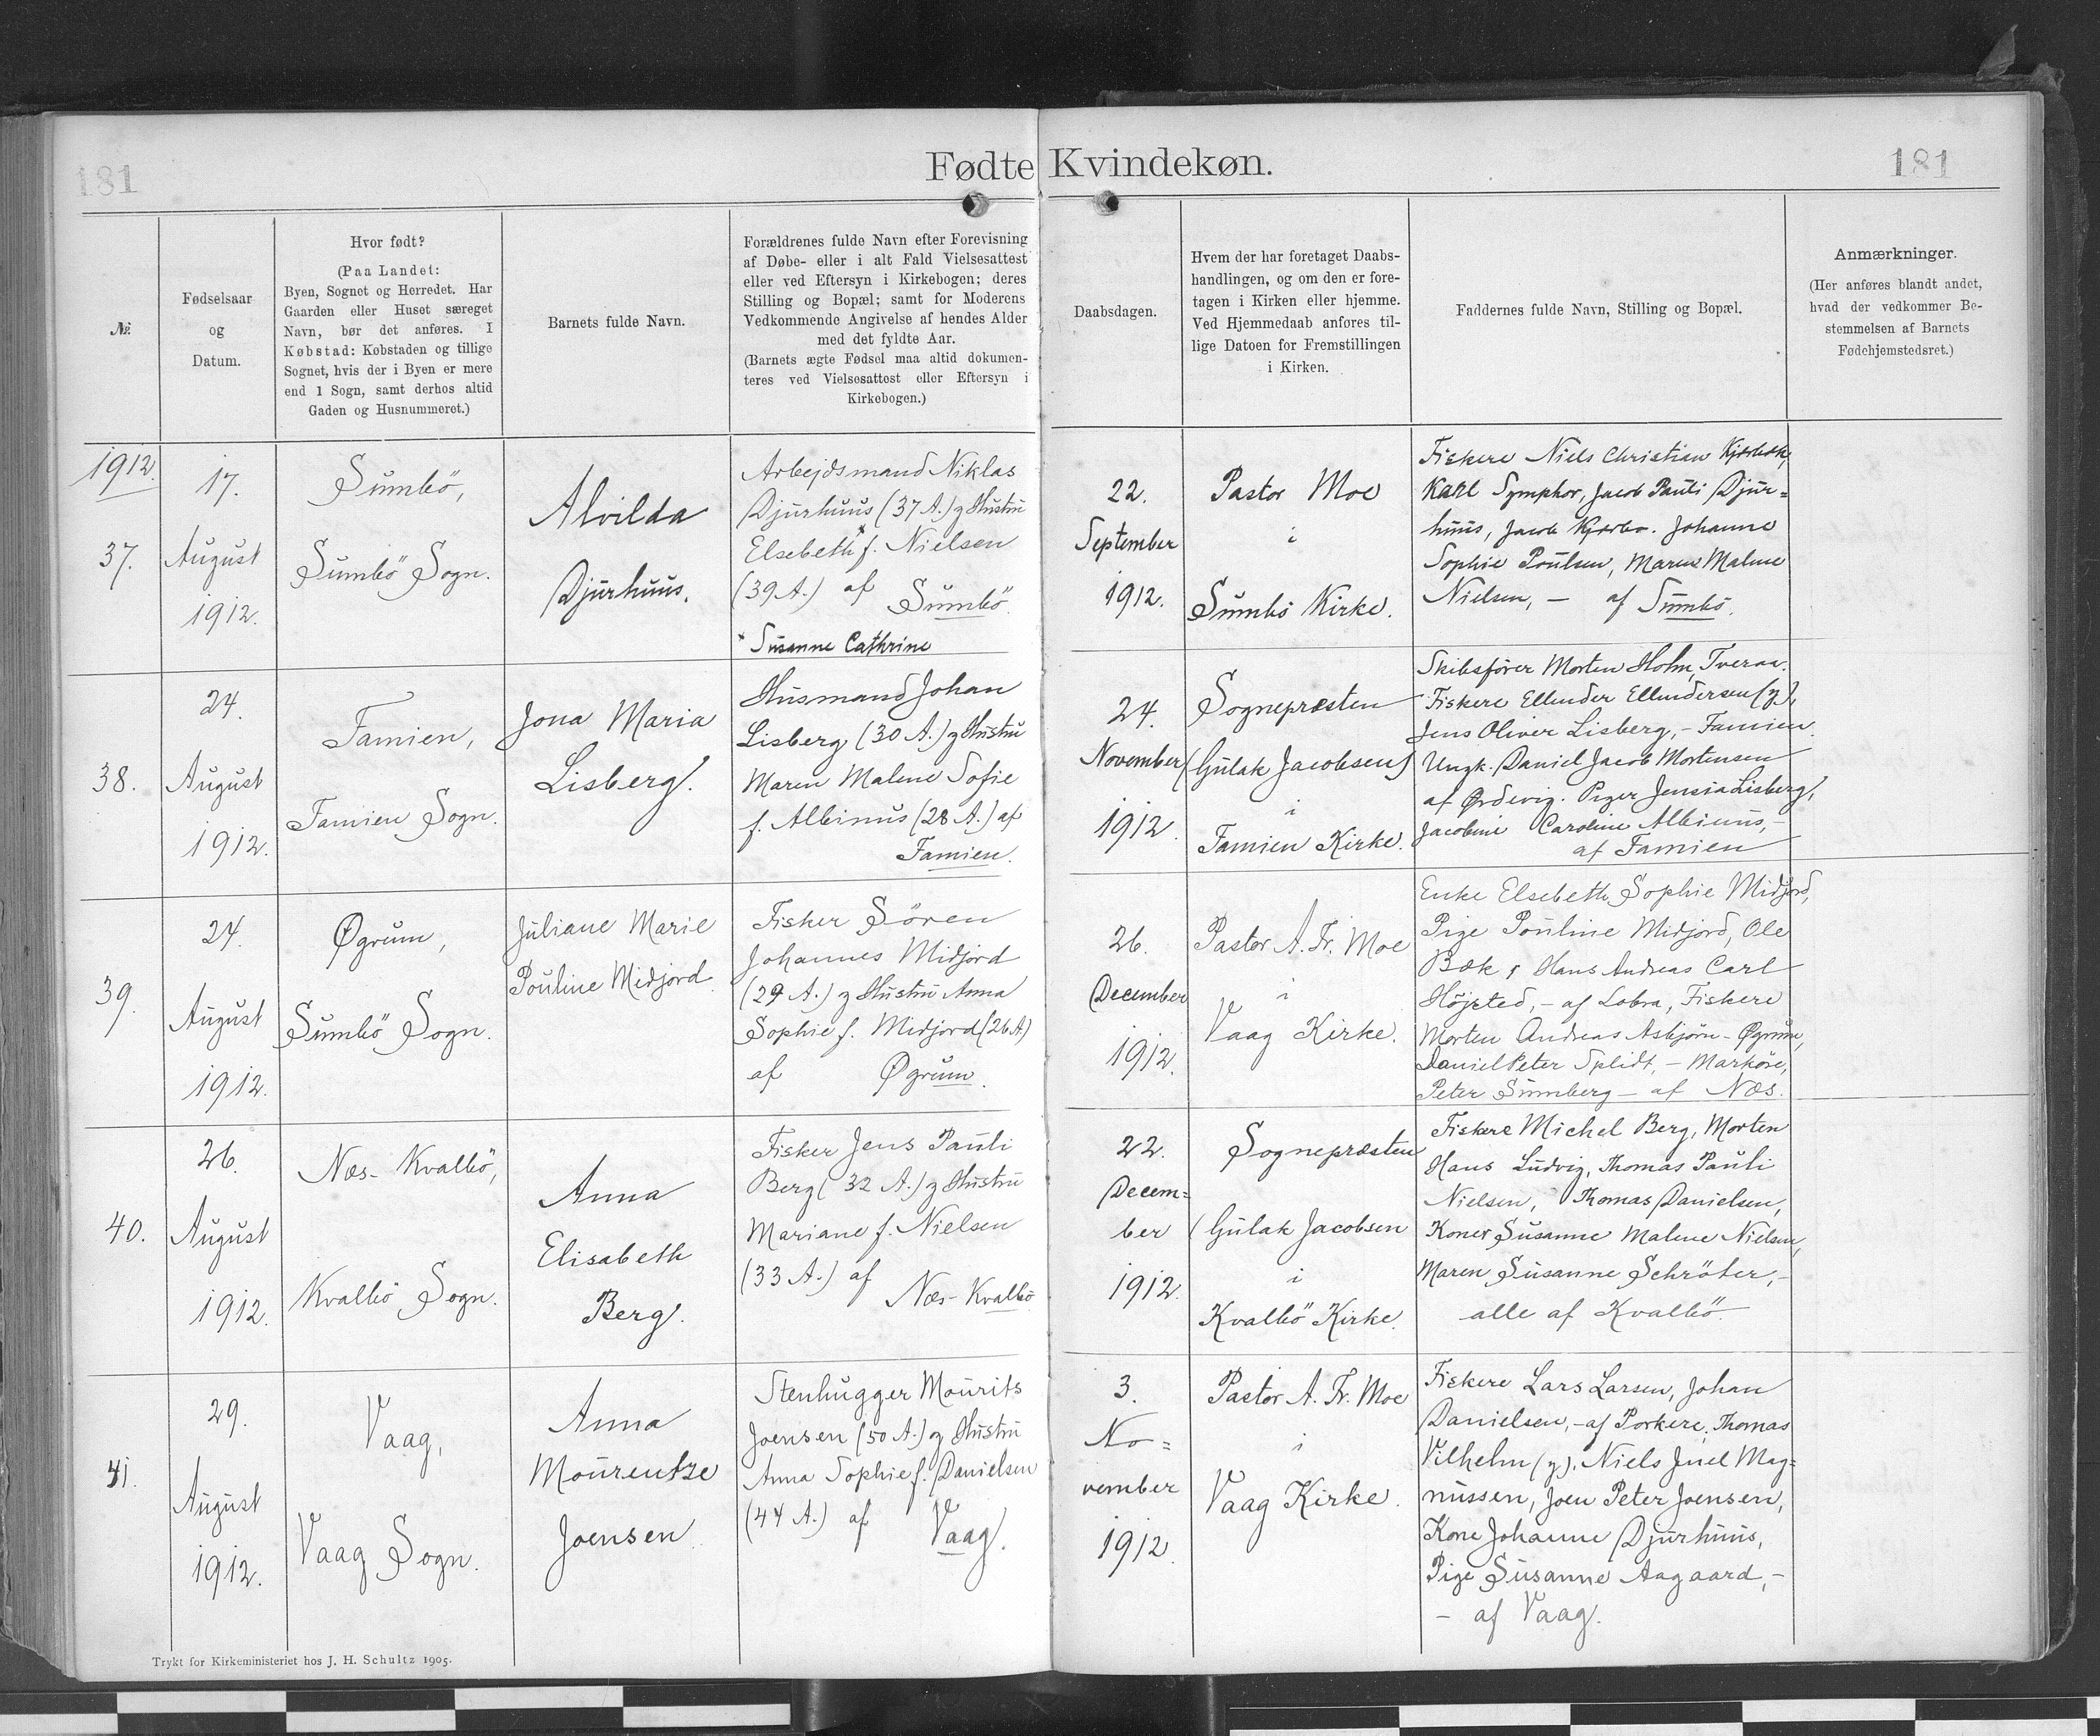 181
Fødte Kvindekøn.
181
№
Fødselsaar
og
Datum.
Hvor født?
(Paa Landet:
Byen, Sognet og Herredet. Har
Gaarden eller Huset særeget
Navn, bør det anføres. I
Købstad: Købstaden og tillige
Sognet, hvis der i Byen er mere
end 1 Sogn, samt derhos altid
Gaden og Husnummeret.)
Barnets fulde Navn.
Forældrenes fulde Navn efter Forevisning
af Døbe- eller i alt Fald Vielsesattest
eller ved Eftersyn i Kirkebogen; deres
Stilling og Bopæl; samt for Moderens
Vedkommende Angivelse af hendes Alder
med det fyldte Aar.
(Barnets ægte Fødsel maa altid dokumen-
teres ved Vielsesattest eller Eftersyn i
Kirkebogen.)
Daabsdagen.
Hvem der har foretaget Daabs-
handlingen, og om den er fore-
tagen i Kirken eller hjemme.
Ved Hjemmedaab anføres til-
lige Datoen for Fremstillingen
i Kirken.
Faddernes fulde Navn, Stilling og Bopæl.
Anmærkninger.
(Her anføres blandt andet,
hvad der vedkommer Be-
stemmelsen af Barnets
Fødehjemstedsret.)
1912.
37.
17.
August
1912.
Sumbö,
Sumbö Sogn.
Alvilda
Djurhuus.
Arbejdsmand Niklas
Djurhuus (37 A.) og Hustru
Elsebeth* f. Nielsen
(39 A.) af Sumbö.
* Susanne Cathrine
22.
September
1912.
Pastor Moe
i
Sumbö Kirke.
Fiskere Niels Christian
Karl Symphor, Jacob Pauli Djur=
huus, Jacob Kjærbo. Johanne
Sophie Poulsen, Maren Malene
Nielsen, – af Sumbö.
38.
24.
August
1912.
Famien,
Famien Sogn.
Jona Maria
Lisberg.
Husmand Johan
Lisberg (30 A.) og Hustru
Maren Malene Sofie
f. Albinus (28 A.) af
Famien.
24.
November
1912.
Sognepræsten
(Gulak Jacobsen)
i
Famien Kirke.
Skibsfører Morten Holm, Tveraa.
Fiskere Ellender Ellendersen (y),
Jens Oliver Lisberg, – Famien.
Ungk. Daniel Jacob Mortensen
af Ørdevig. Piger Jensia Lisberg,
Jacobine Caroline Albinus, –
af Famien
39.
24.
August
1912.
Øgrum,
Sumbö Sogn.
Juliane Marie
Pouline Midjord
Fisker Sören
Johannes Midjord
(29 A.) og Hustru Anna
Sophie f. Midjord (26 A)
af Øgrum.
26.
December
1912.
Pastor A. Fr. Moe
i
Vaag Kirke.
Enke Elsebeth Sophie Midjord,
Pige Pouline Midjord, Ole
Bæk, Hans Andreas Carl
Höjsted, – af Lobra, Fiskere
Morten Andreas Asbjørn – Øgrum,
Daniel Peter Splidt, – Marköre,
Peter Sumberg – af Næs.
40.
26.
August
1912.
Næs- Kvalbö,
Kvalbö Sogn.
Anna
Elisabeth
Berg.
Fisker Jens Pauli
Berg (32 A.) og Hustru
Mariane f. Nielsen
(33 A.) af Næs-Kvalbö
22.
Decem=
ber
1912.
Sognepræsten
(Gulak Jacobsen
i
Kvalbö Kirke.
Fiskere Michel Berg, Morten
Hans Ludvig, Thomas Pauli
Nielsen, Thomas Danielsen,
Koner Susanne Malene Nielsen,
Maren Susanne Schröter, –
alle af Kvalbö.
41.
29.
August
1912.
Vaag,
Vaag Sogn.
Anna
Mourentze
Joensen
Stenhugger Mourits
Joensen (50 A.) og Hustru
Anna Sophie f. Danielsen
(44 A.) af Vaag.
3.
No=
vember
1912.
Pastor A. Fr. Moe
i
Vaag Kirke.
Fiskere Lars Larsen, Johan
Danielsen, – af Porkere, Thomas
Vilhelm (y), Niels Juel Mag=
nussen, Joen Peter Joensen,
Kone Johanne Djurhuus,
Pige Susanne Aagaard, –
– af Vaag.
Trykt for Kirkeministeriet hos J. H. Schultz 1905.